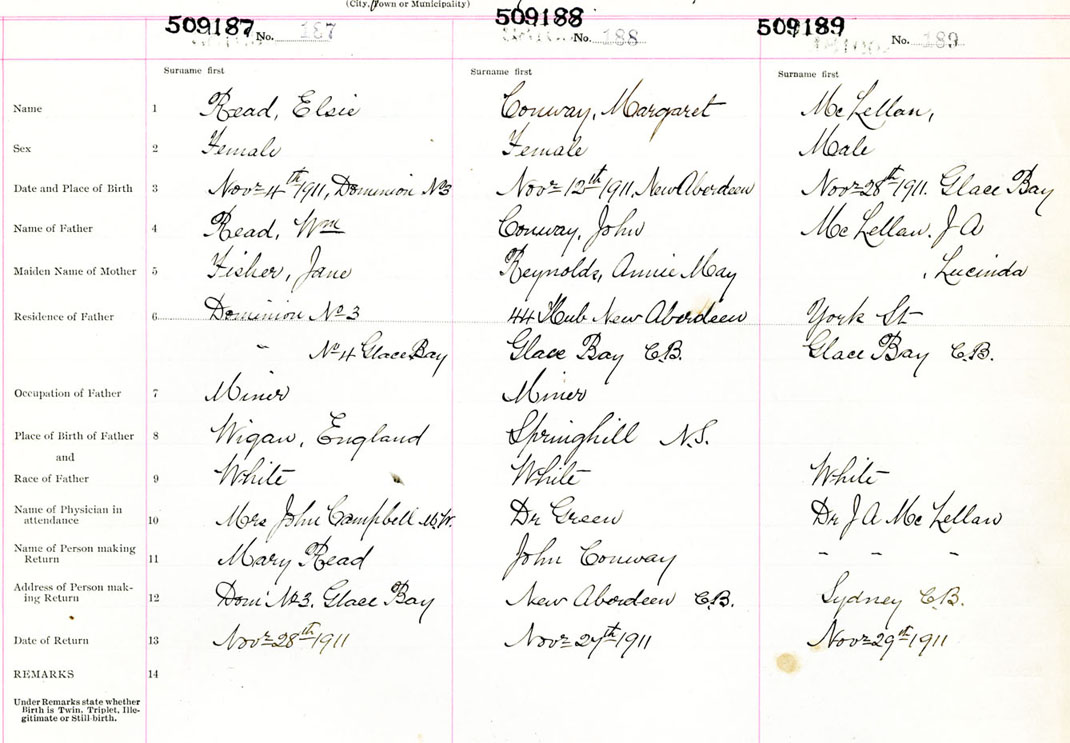 (City, Town or Municipality)
509187 No. 187 509188 No. 188 509189 No. 189
Surname first Surname first Surname first
Name 1 Read, Elsie Conway, Margaret McLellan,
Sex 2 Female Female Male
Date and Place of Birth 3 Novr 4th 1911, Dominion No 3 Novr 12th 1911, New Aberdeen Novr 28th 1911. Glace Bay
Name of Father 4 Read, Wm Conway, John McLellan. J A
Maiden Name of Mother 5 Fisher, Jane Reynolds, Annie May , Lucinda
Residence of Father 6 Dominion No 3 44 Hub New Aberdeen York St
" No 4 Glace Bay Glace Bay C.B. Glace Bay C.B.
Occupation of Father 7 Miner Miner
Place of Birth of Father 8 Wigan, England Springhill N.S.
and
Race of Father 9 White White White
Name of Physician in
attendance 10 Mrs John Campbell M.W. Dr Green Dr J A McLellan
Name of Person making
Return 11 Mary Read John Conway " " "
Address of Person mak-
ing Return 12 Dom. No 3. Glace Bay New Aberdeen C.B. Sydney C.B.
Date of Return 13 Novr 28th 1911 Novr 27th 1911 Novr 29th 1911
REMARKS 14
Under Remarks state whether
Birth is Twin, Triplet, Ille-
gitimate or Still-birth.